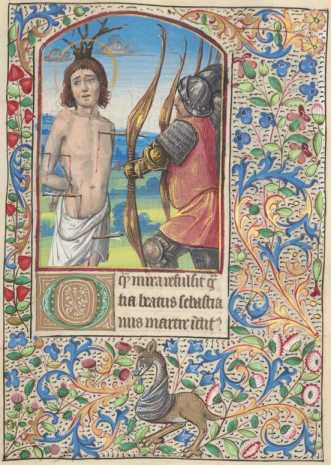 O q̄ mira refulsit gͣ
tia beatus sebastia
nus martir īclitꝰ